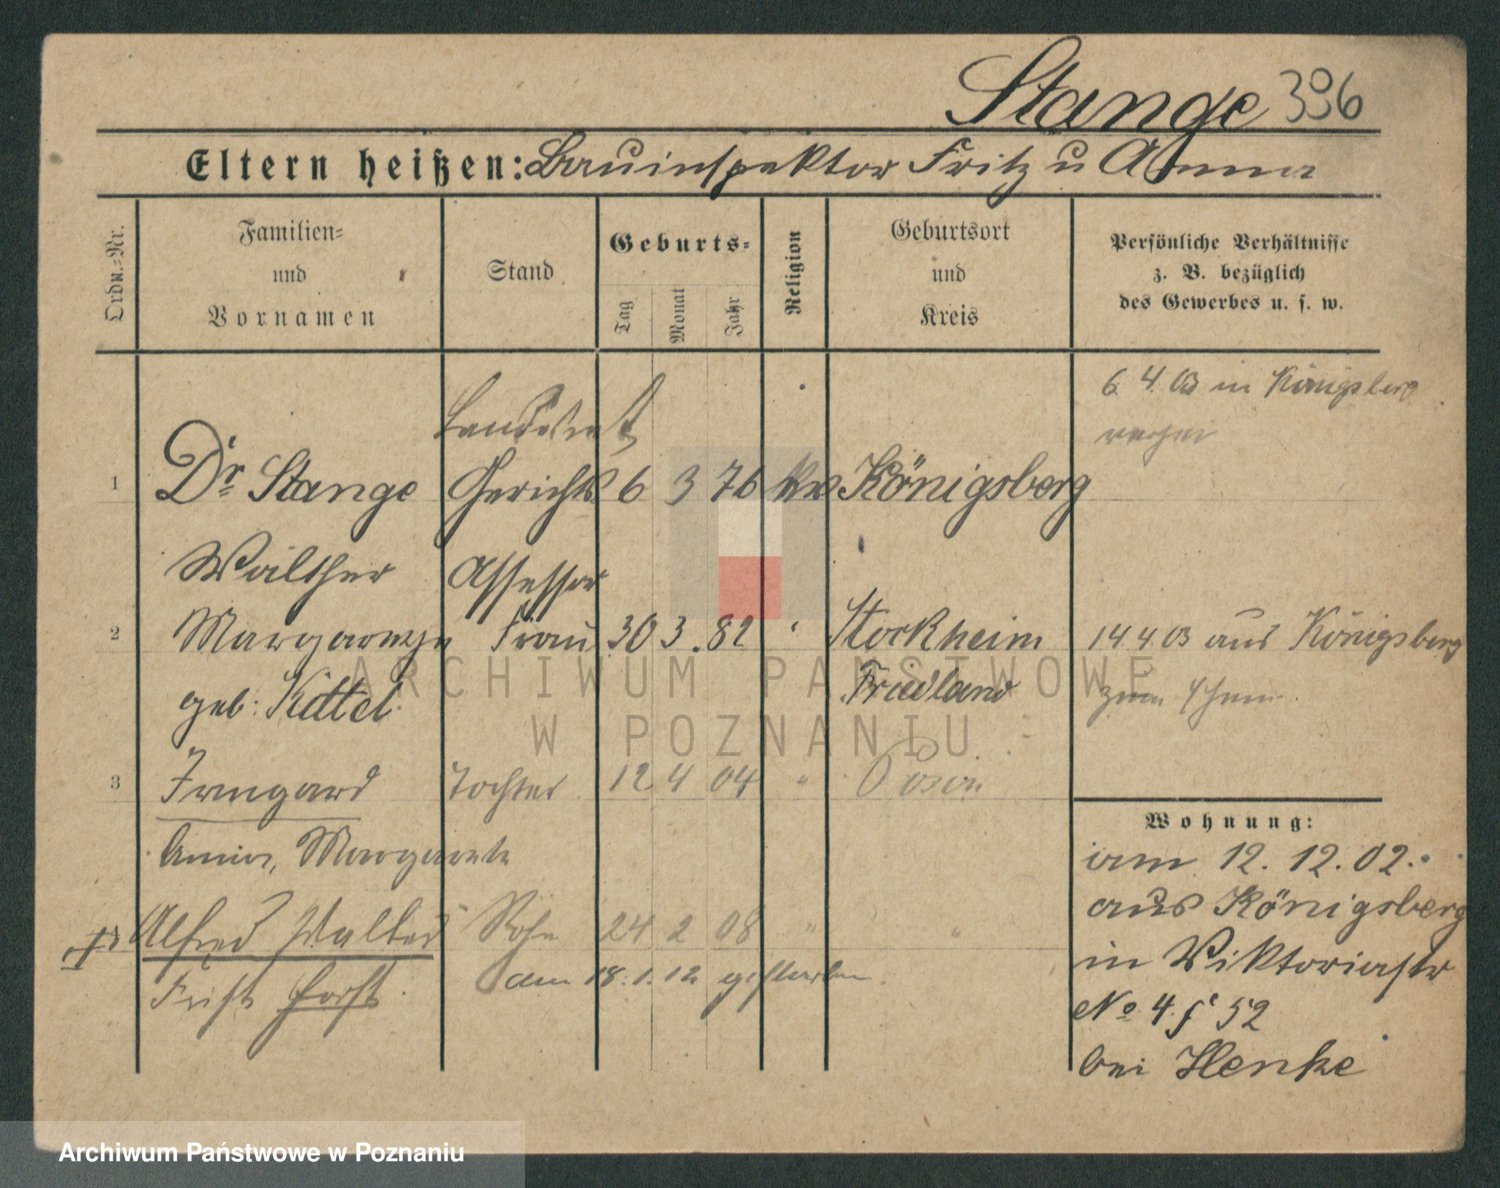 Stange 396
Eltern heißen: Bauinspektor Fritz u Anna
Ordn.-Nr.
Familien-
und
Vornamen
Stand
Geburts-
Tag
Monat
Jahr
Religion
Geburtsort
und
Kreis
Persönliche Verhältnisse
z. B. bezüglich
des Gewerbes u. s. w.
Landesrat
6. 4. 03 in Königsberg
1 Dr. Stange Gerichts 6 3 76 Königsberg
Walther Assessor
2 Margarethe Frau 30 3. 82 " Stockheim
14 4 03 aus Königsberg
geb: Kittel Friedland
zum
3 Irmgard Tochter 12 4 04 " Posen
Anna, Margarete
Alfred Walter Sohn 24 2 08 " "
Fritz Horst am 18.1.12 gestorben.
Wohnung:
am 12. 12. 02.
aus Königsberg
in Viktoriastr
No 4. f 52
bei Henke
ARCHIWUM PAŃSTWOWE
W POZNANIU
Archiwum Państwowe w Poznaniu